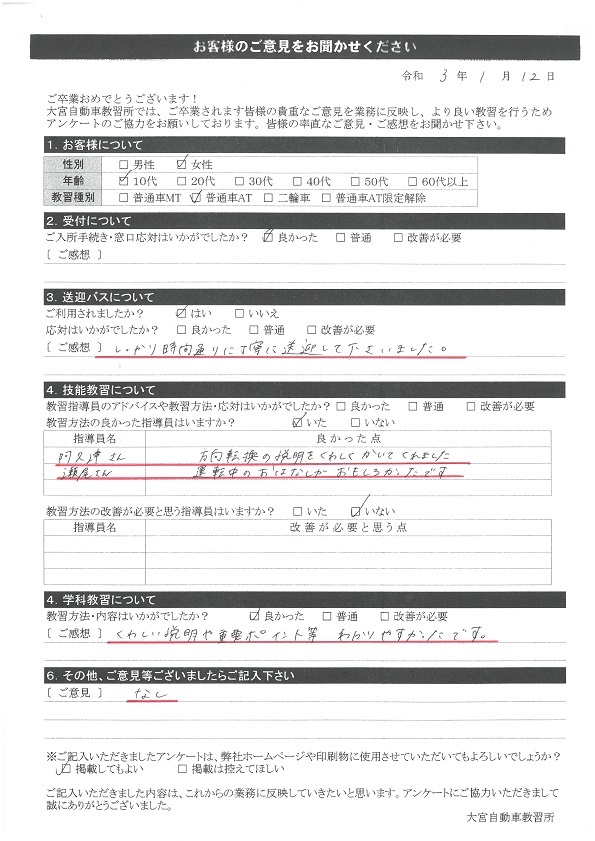 お客様のご意見をお聞かせください
令和 3 年 1 月 12 日
ご卒業おめでとうございます！
大宮自動車教習所では、ご卒業されます皆様の貴重なご意見を業務に反映し、より良い教習を行うため
アンケートのご協力をお願いしております。皆様の率直なご意見・ご感想をお聞かせ下さい。
1. お客様について
性別 □ 男性 ☑ 女性
年齢 ☑ 10代 □ 20代 □ 30代 □ 40代 □ 50代 □ 60代以上
教習種別 □ 普通車MT ☑ 普通車AT □ 二輪車 □ 普通車AT限定解除
2. 受付について
ご入所手続き・窓口応対はいかがでしたか？ ☑ 良かった □ 普通 □ 改善が必要
[ ご感想 ]
3. 送迎バスについて
ご利用されましたか？ ☑ はい □ いいえ
応対はいかがでしたか？ □ 良かった □ 普通 □ 改善が必要
[ ご感想 ] しっかり時間通りに丁寧に送迎して下さいました。
4. 技能教習について
教習指導員のアドバイスや教習方法・応対はいかがでしたか？ □ 良かった □ 普通 □ 改善が必要
教習方法の良かった指導員はいますか？ ☑ いた □ いない
指導員名 良かった点
阿久津さん 方向転換の説明をくわしくかいてくれました
瀬尾さん 運転中のおはなしがおもしろかったです
教習方法の改善が必要と思う指導員はいますか？ □ いた ☑ いない
指導員名 改善が必要と思う点
4. 学科教習について
教習方法・内容はいかがでしたか？ ☑ 良かった □ 普通 □ 改善が必要
[ ご感想 ] くわしい説明や重要ポイント等 わかりやすかったです。
6. その他、ご意見等ございましたらご記入下さい
[ ご意見 ] なし
※ご記入いただきましたアンケートは、弊社ホームページや印刷物に使用させていただいてもよろしいでしょうか？
☑ 掲載してもよい □ 掲載は控えてほしい
ご記入いただきました内容は、これからの業務に反映していきたいと思います。アンケートにご協力いただきまして
誠にありがとうございました。
大宮自動車教習所